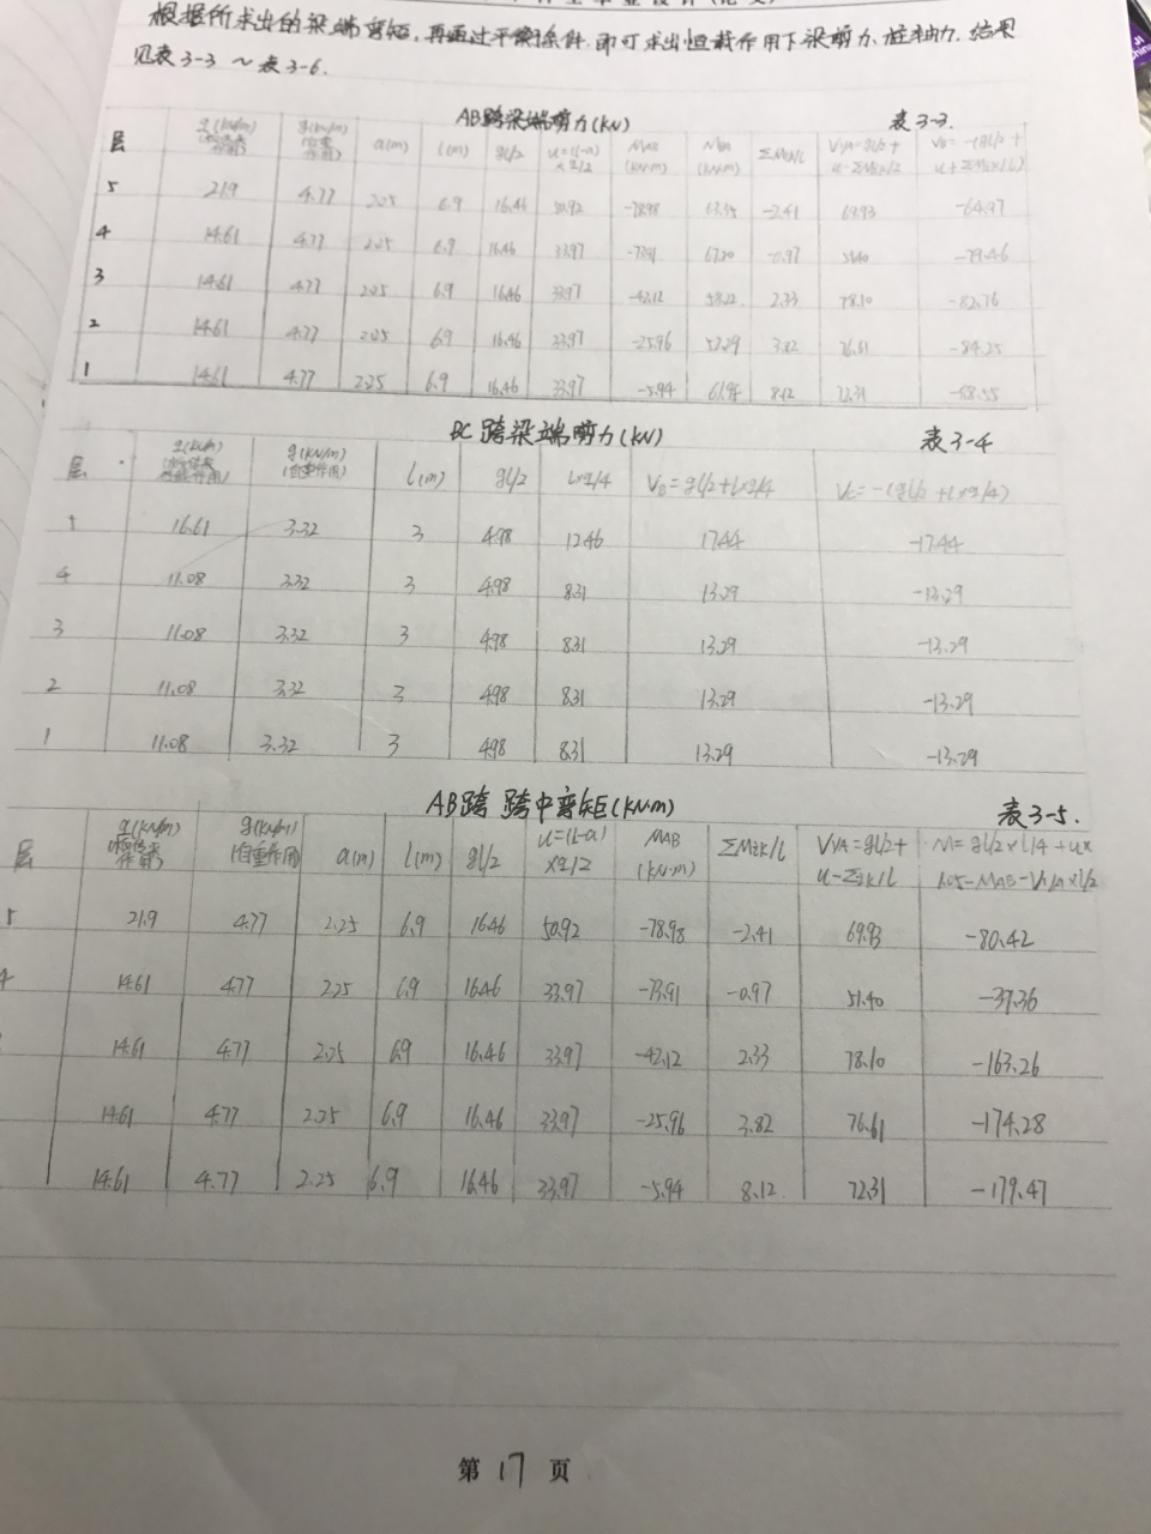 根据所求出的梁端弯矩,再通过平衡条件,即可求出恒载作用下梁剪力、柱轴力,结果
见表3-3 ~ 表3-6.
AB跨梁端剪力(kN) 表3-3.
层 q(kN/m) g(kN/m) (自重作用) a(m) l(m) gl/2 u=(l-a)×q/2 MAB (kN·m) MBA (kN·m) ΣMik/l V1/A=gl/2+u-ΣMik/l VB=-(gl/2+u+ΣMik/l)
5 21.9 4.77 2.25 6.9 16.46 50.92 -78.98 -2.41 69.93 -64.97
4 14.61 4.77 2.25 6.9 16.46 33.97 -73.91 67.20 -0.97 51.40 -79.46
3 14.61 4.77 2.25 6.9 16.46 33.97 -42.12 58.22 2.33 78.10 -82.76
2 14.61 4.77 2.25 6.9 16.46 33.97 -25.96 3.82 76.61 -84.25
1 14.61 4.77 2.25 6.9 16.46 33.97 -5.94 61.94 8.12 72.31 -58.55
BC跨梁端剪力(kN) 表3-4
层 q(kN/m) g(kN/m) (自重作用) l(m) gl/2 l×q/4 VB=gl/2+l×q/4 VC=-(gl/2+l×q/4)
5 16.61 3.32 3 4.98 12.46 17.44 -17.44
4 11.08 3.32 3 4.98 8.31 13.29 -13.29
3 11.08 3.32 3 4.98 8.31 13.29 -13.29
2 11.08 3.32 3 4.98 8.31 13.29 -13.29
1 11.08 3.32 3 4.98 8.31 13.29 -13.29
AB跨 跨中弯矩(kN·m) 表3-5.
层 q(kN/m) (板传来作用) g(kN/m) (自重作用) a(m) l(m) gl/2 u=(l-a)×q/2 MAB (kN·m) ΣMik/l V1/A=gl/2+u-Σik/l M=gl/2×l/4+u×1.05-MAB-V1/A×l/2
5 21.9 4.77 2.25 6.9 16.46 50.92 -78.98 -2.41 69.93 -80.42
4 14.61 4.77 2.25 6.9 16.46 33.97 -73.91 -0.97 51.40 -37.36
14.61 4.77 2.25 6.9 16.46 33.97 -42.12 2.33 78.10 -163.26
14.61 4.77 2.25 6.9 16.46 33.97 -25.96 3.82 76.61 -174.28
14.61 4.77 2.25 6.9 16.46 33.97 -5.94 8.12 72.31 -179.47
第 17 页